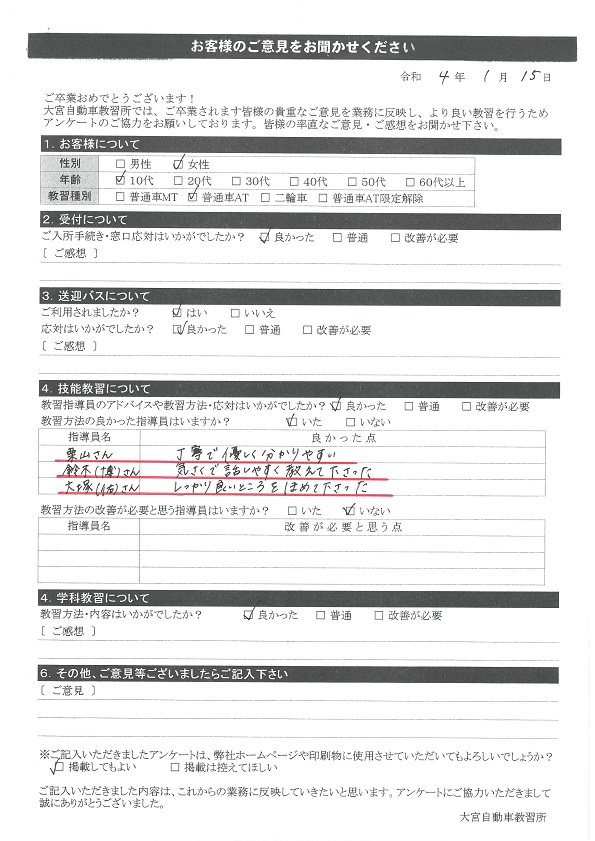 お客様のご意見をお聞かせください
令和 4 年 1 月 15 日
ご卒業おめでとうございます！
大宮自動車教習所では、ご卒業されます皆様の貴重なご意見を業務に反映し、より良い教習を行うため
アンケートのご協力をお願いしております。皆様の率直なご意見・ご感想をお聞かせ下さい。
1．お客様について
性別 □ 男性 ☑ 女性
年齢 ☑ 10代 □ 20代 □ 30代 □ 40代 □ 50代 □ 60代以上
教習種別 □ 普通車MT ☑ 普通車AT □ 二輪車 □ 普通車AT限定解除
2．受付について
ご入所手続き・窓口応対はいかがでしたか？ ☑ 良かった □ 普通 □ 改善が必要
〔 ご感想 〕
3．送迎バスについて
ご利用されましたか？ ☑ はい □ いいえ
応対はいかがでしたか？ ☑ 良かった □ 普通 □ 改善が必要
〔 ご感想 〕
4．技能教習について
教習指導員のアドバイスや教習方法・応対はいかがでしたか？ ☑ 良かった □ 普通 □ 改善が必要
教習方法の良かった指導員はいますか？ ☑ いた □ いない
指導員名 良かった点
栗山さん 丁寧で優しく分かりやすい
鈴木(博)さん 気さくで話しやすく教えて下さった
大塚(佑)さん しっかり良いところをほめて下さった
教習方法の改善が必要と思う指導員はいますか？ □ いた ☑ いない
指導員名 改善が必要と思う点
4．学科教習について
教習方法・内容はいかがでしたか？ ☑ 良かった □ 普通 □ 改善が必要
〔 ご感想 〕
6．その他、ご意見等ございましたらご記入下さい
〔 ご意見 〕
※ご記入いただきましたアンケートは、弊社ホームページや印刷物に使用させていただいてもよろしいでしょうか？
☑ 掲載してもよい □ 掲載は控えてほしい
ご記入いただきました内容は、これからの業務に反映していきたいと思います。アンケートにご協力いただきまして
誠にありがとうございました。
大宮自動車教習所